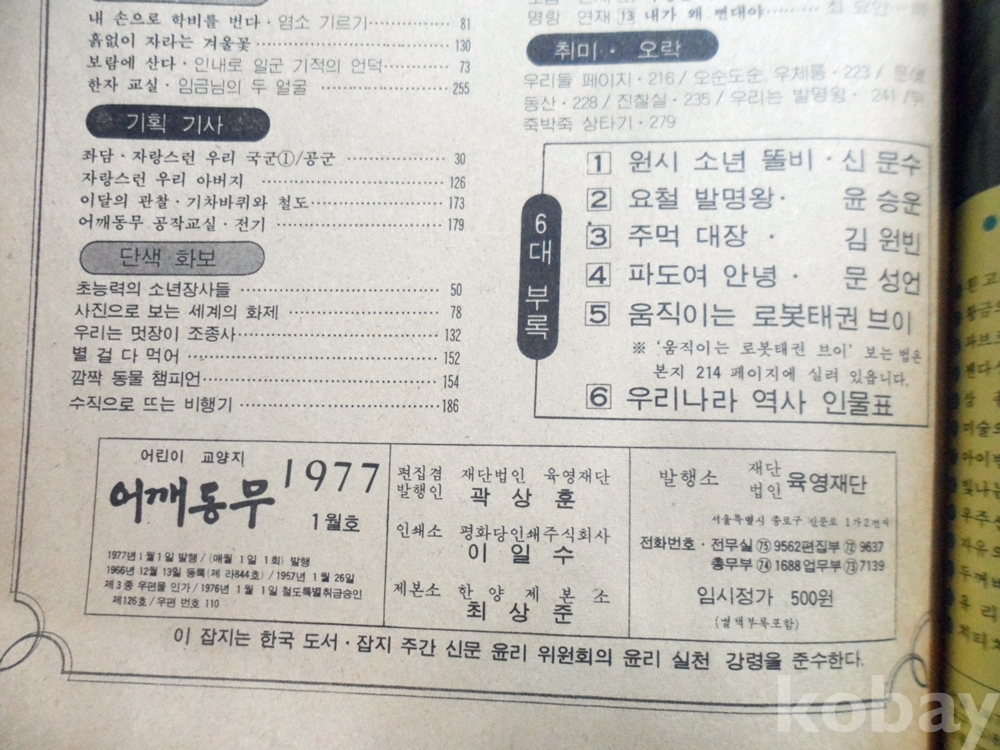 내 손으로 학비를 번다·염소 기르기 81
흙없이 자라는 겨울꽃 130
보람에 산다·인내로 일군 기적의 언덕 73
한자 교실·임금님의 두 얼굴 255
기획 기사
좌담·자랑스런 우리 국군①/공군 30
자랑스런 우리 아버지 126
이달의 관찰·기차바퀴와 철도 173
어깨동무 공작교실·전기 179
단색 화보
초능력의 소년장사들 50
사진으로 보는 세계의 화제 78
우리는 멋장이 조종사 132
별 걸 다 먹어 152
깜짝 동물 챔피언 154
수직으로 뜨는 비행기 186
명랑 연재 13 내가 왜 뻔대야
취미·오락
우리들 페이지·216/오순도순 우체통·223/
동산·228/진찰실·235/우리는 발명왕·241/
죽박죽 상타기·279
6대 부록
1 원시 소년 똘비·신문수
2 요철 발명왕·윤승운
3 주먹 대장·김원빈
4 파도여 안녕·문성언
5 움직이는 로봇태권브이
※ '움직이는 로봇태권 브이' 보는 법은
본지 214 페이지에 실려 있읍니다.
6 우리나라 역사 인물표
어린이 교양지
어깨동무
1977
1월호
1977년1월1일 발행/(매월 1일 1회) 발행
1966년 12월 13일 등록(제 라844호)/1957년 1월 26일
제3종 우편물 인가/1976년 1월 1일 철도특별취급승인
제126호/우편 번호 110
편집겸 발행인 재단법인 육영재단
곽상훈
인쇄소 평화당인쇄주식회사
이일수
제본소 한양제본소
최상준
발행소 재단법인 육영재단
서울특별시 종로구 신문로 1가2번지
전화번호·전무실 ㊄ 9562편집부 ㊆ 9637
총무부 ㊆ 1688업무부 ㊆ 7139
임시정가 500원
(별책부록포함)
이 잡지는 한국 도서·잡지 주간 신문 윤리 위원회의 윤리 실천 강령을 준수한다.
kobay